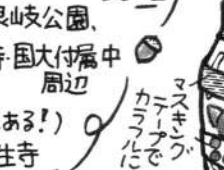 良岐公園、
寺・国大付属中
周辺
ある!)
生寺
マスキング
テープで
カラフルに